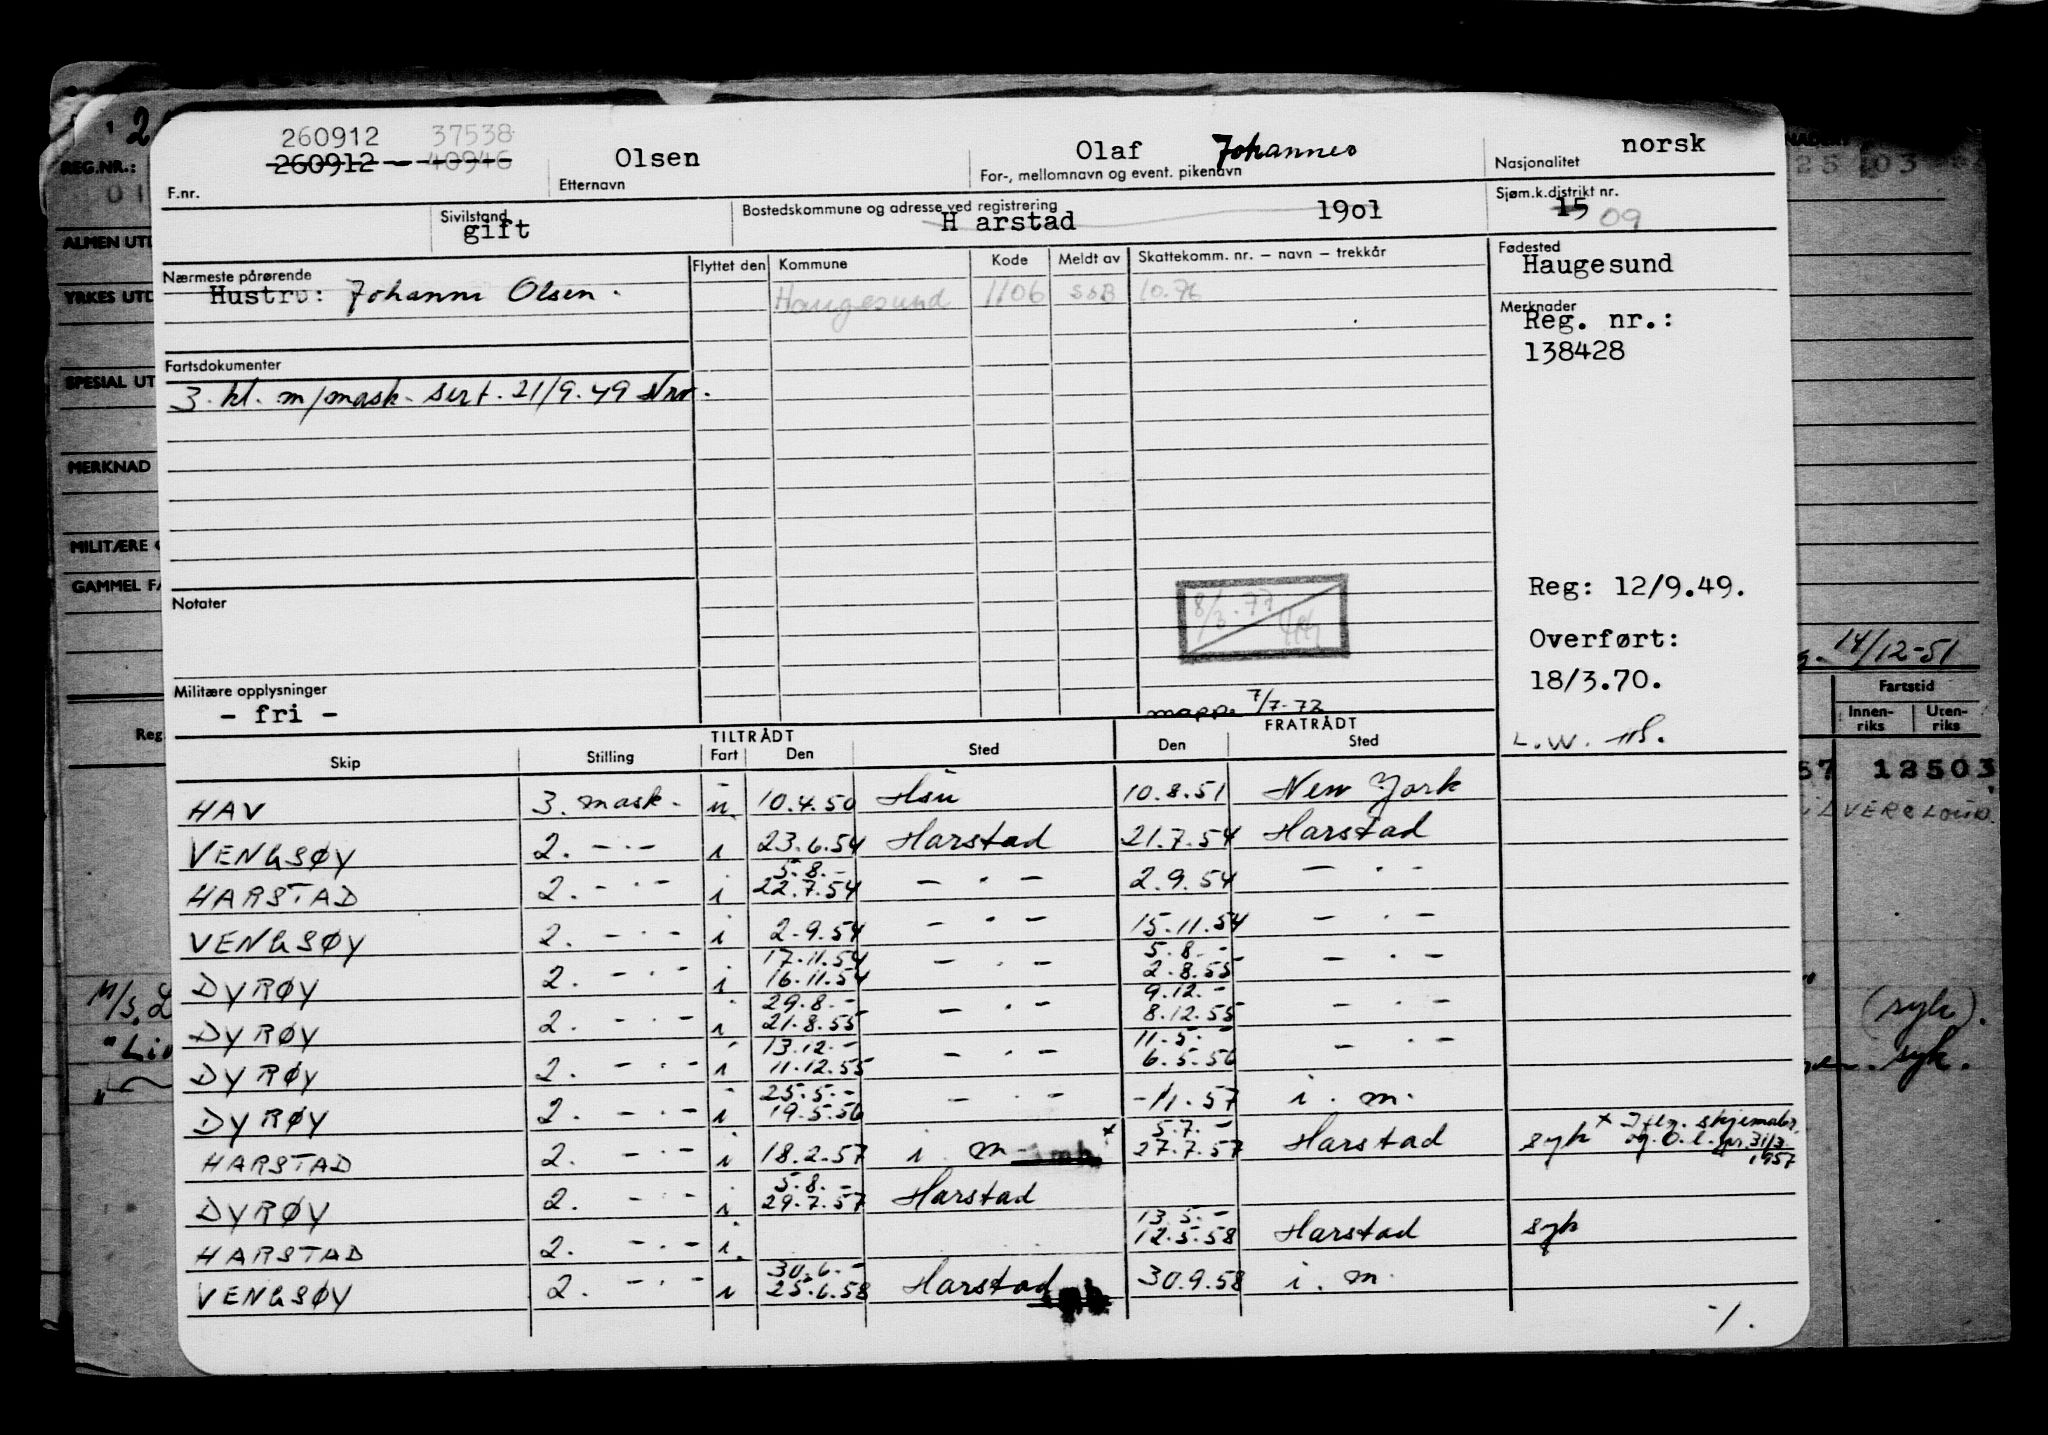 260912 37538
260912 - - - 40946
Olsen
Olaf Johannes
norsk
F.nr.
Etternavn
For-, mellomnavn og event. pikenavn
Nasjonalitet
Sivilstand
gift
Bostedskommune og adresse ved registrering
H arstad 1901
Sjøm.k.distrikt nr.
15 09
Nærmeste pårørende
Hustru: Johanne Olsen.
Flyttet den Kommune Kode Meldt av Skattekomm. nr. – navn – trekkår
Haugesund 1106 SSB 10.76
Fødested
Haugesund
Merknader
Reg. nr.:
138428
Fartsdokumenter
3. kl. m/mask. sert. 21/9.49
Notater
8/3.77
Reg: 12/9.49.
Overført:
18/3.70.
Militære opplysninger
- fri -
mapp. 7/7-72
TILTRÅDT FRATRÅDT
Skip Stilling Fart Den Sted Den Sted
HAV 3. mask. u 10.4.50 Hsu 10.8.51 New York
VENGSØY 2. -.- i 23.6.54 Harstad 21.7.54 Harstad
5.8.-
HARSTAD 2. -.- i 22.7.54 - . - 2.9.54 - . -
VENGSØY 2. -.- i 2.9.54 - . - 15.11.54 - . -
17.11.54 5.8.-
DYRØY 2. -.- i 16.11.54 - . - 2.8.55 - . -
29.8.- 9.12.-
DYRØY 2. -.- i 21.8.55 - . - 8.12.55 - . -
13.12.- 11.5.-
DYRØY 2. -.- i 11.12.55 - . - 6.5.56 - . -
25.5.-
DYRØY 2. -.- i 19.5.56 - . - -11.57 i. m.
5.7.- x
HARSTAD 2. -.- i 18.2.57 i. m 27.7.57 Harstad syk x Iflg. skjemabr. og O.l. pr. 31/3 1957
5.8.-
DYRØY 2. -.- i 29.7.57 Harstad
13.5.-
HARSTAD 2. -.- i. 12.5.58 Harstad syk
30.6.-
VENGSØY 2. -.- i 25.6.58 Harstad 30.9.58 i. m.
-/.
REG.NR.:
ALMEN UTD
YRKES UTD
SPESIAL UT
MERKNAD
MILITÆRE
GAMMEL FA
Reg.
25 103
14/12-51
Fartstid
Innen-riks Uten-riks
57 12503
(syk).
syk.
M/S. L